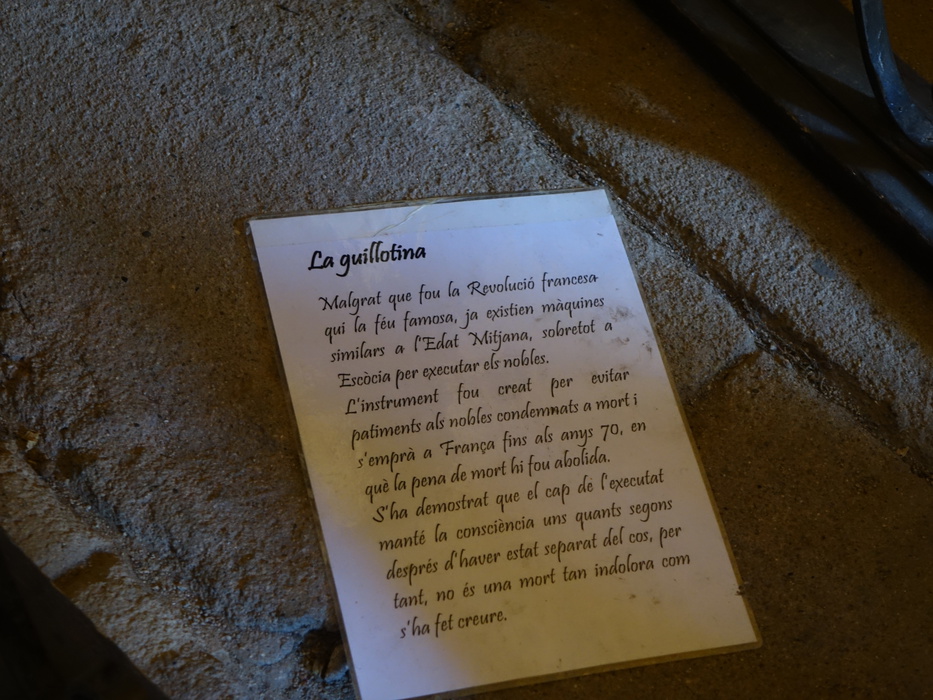 La guillotina
Malgrat que fou la Revolució francesa
qui la féu famosa, ja existien màquines
similars a l'Edat Mitjana, sobretot a
Escòcia per executar els nobles.
L'instrument fou creat per evitar
patiments als nobles condemnats a mort i
s'emprà a França fins als anys 70, en
què la pena de mort hi fou abolida.
S'ha demostrat que el cap de l'executat
manté la consciència uns quants segons
després d'haver estat separat del cos, per
tant, no és una mort tan indolora com
s'ha fet creure.